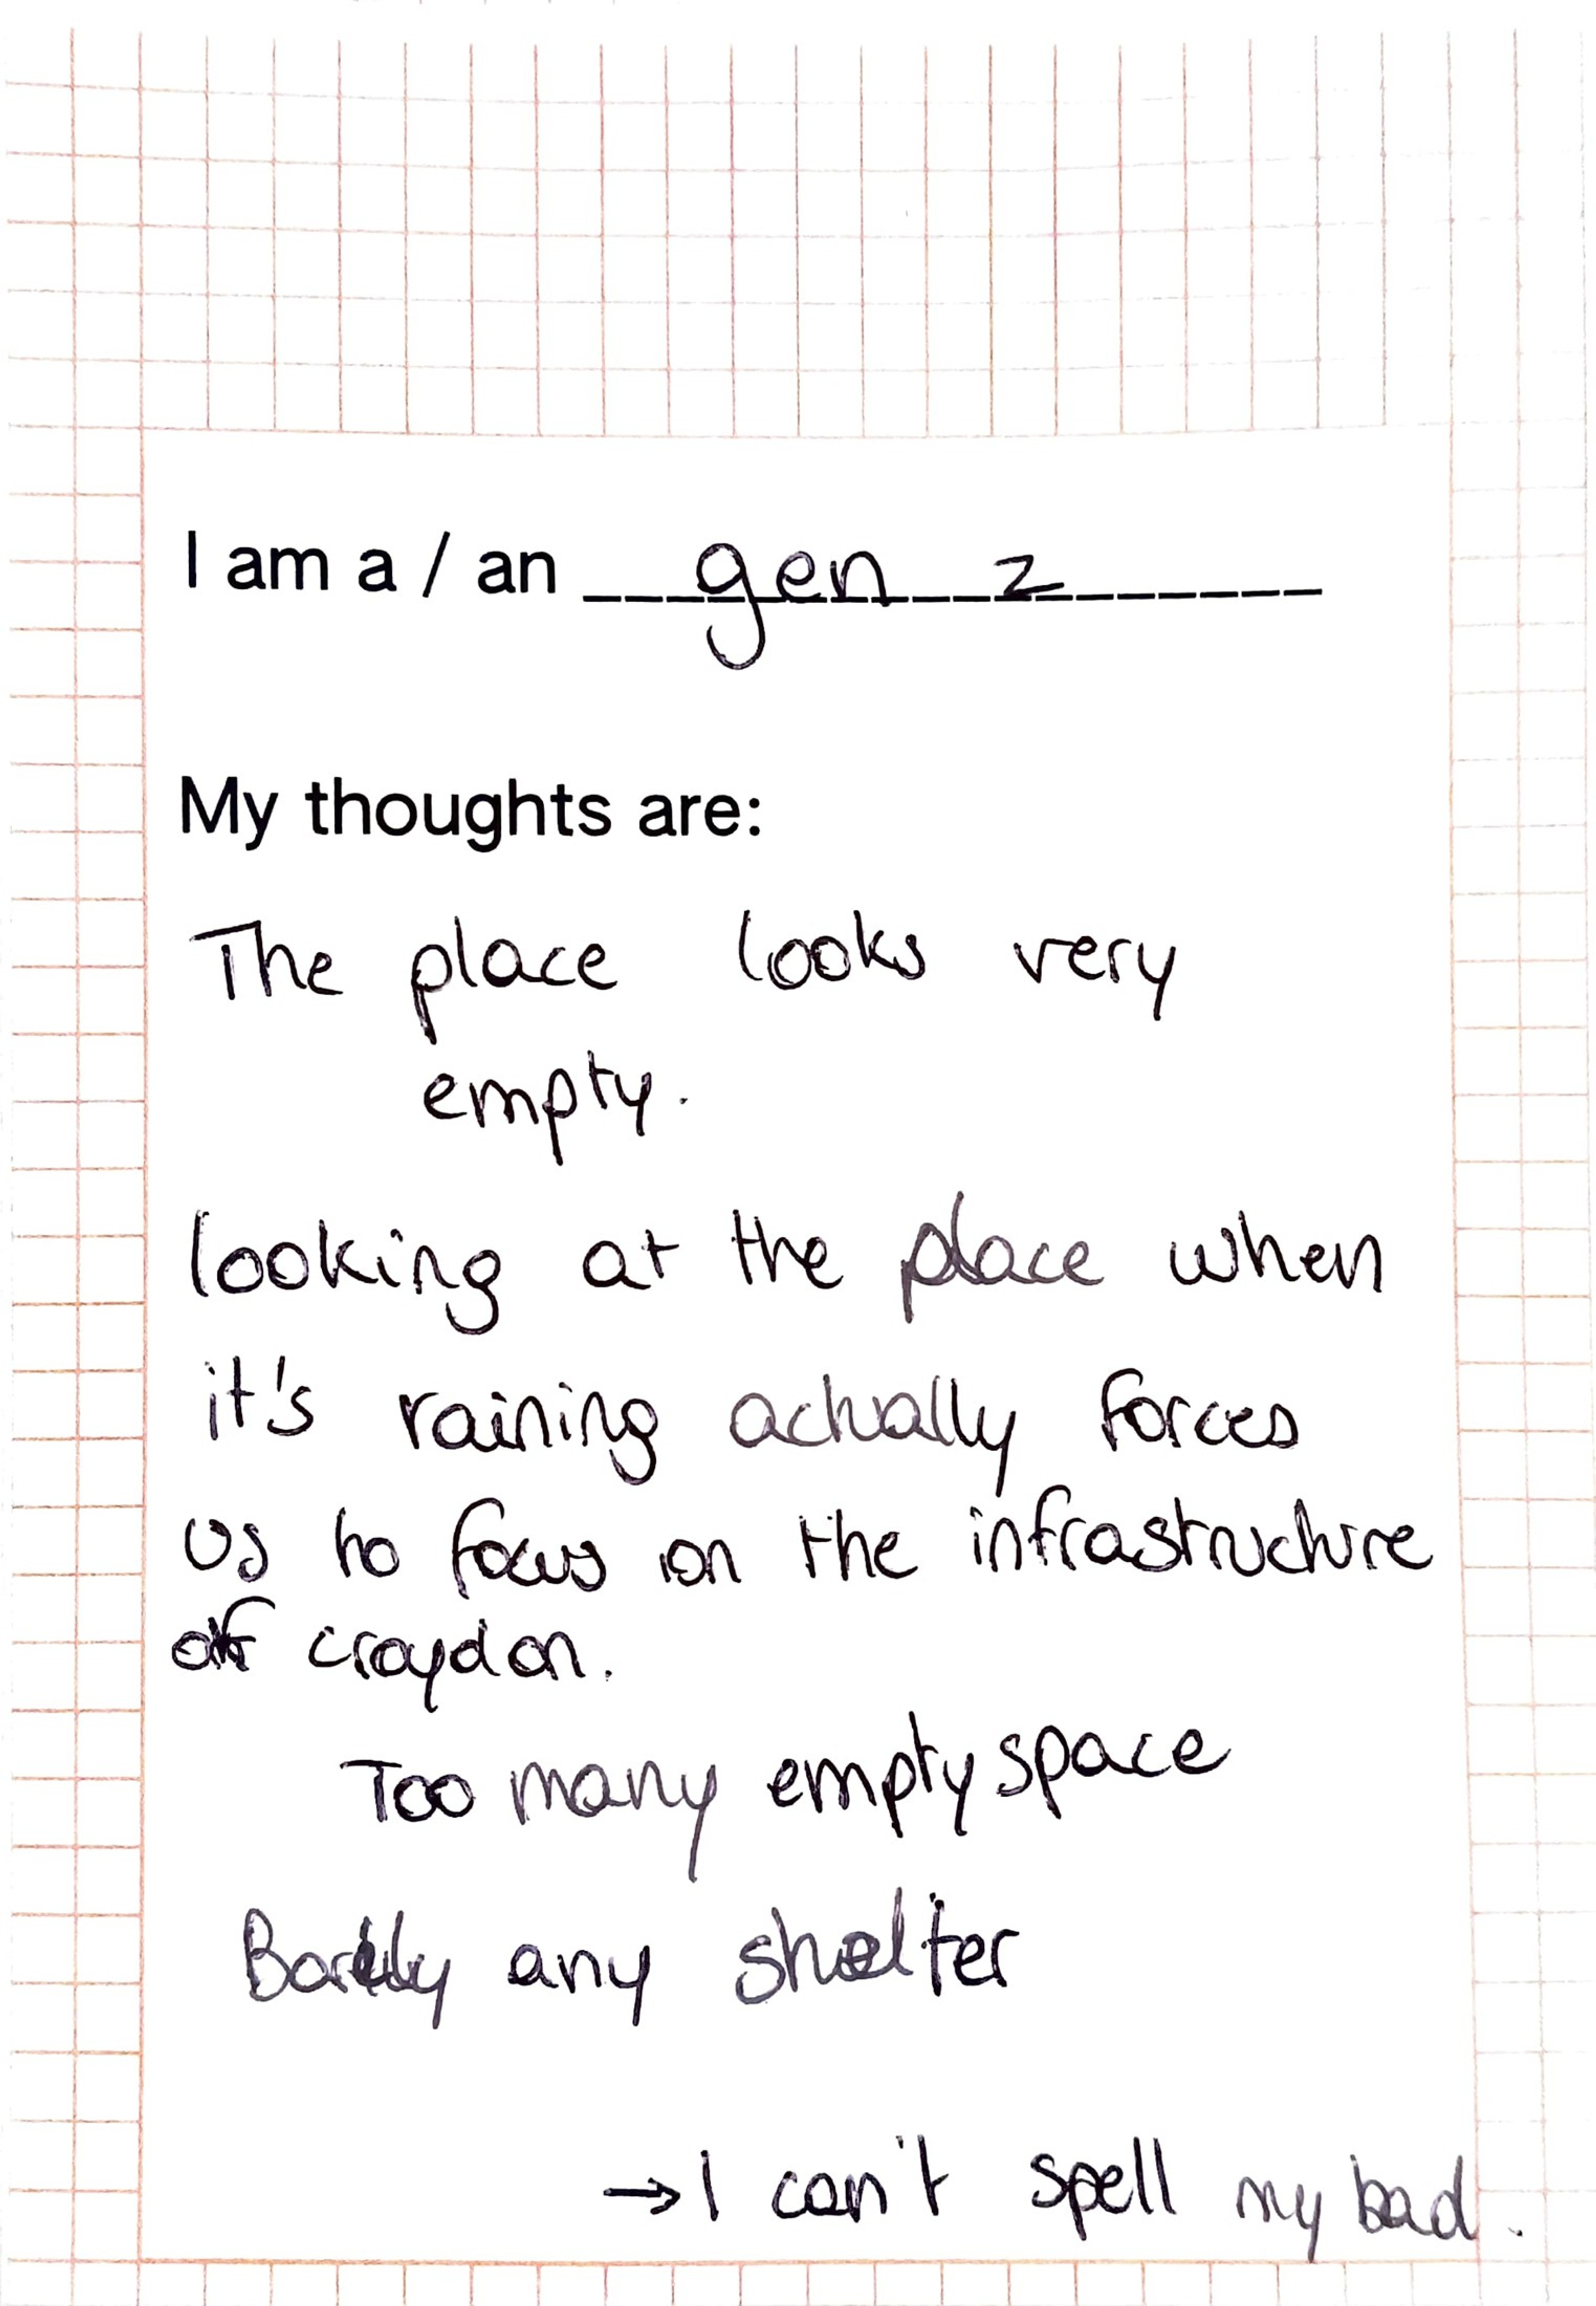 I am a / an gen z
My thoughts are:
The place looks very
empty.
looking at the place when
it's raining actually forces
us to focus on the infrastructure
of croydon.
Too many empty space
Barely any shelter
→ I can't spell my bad.